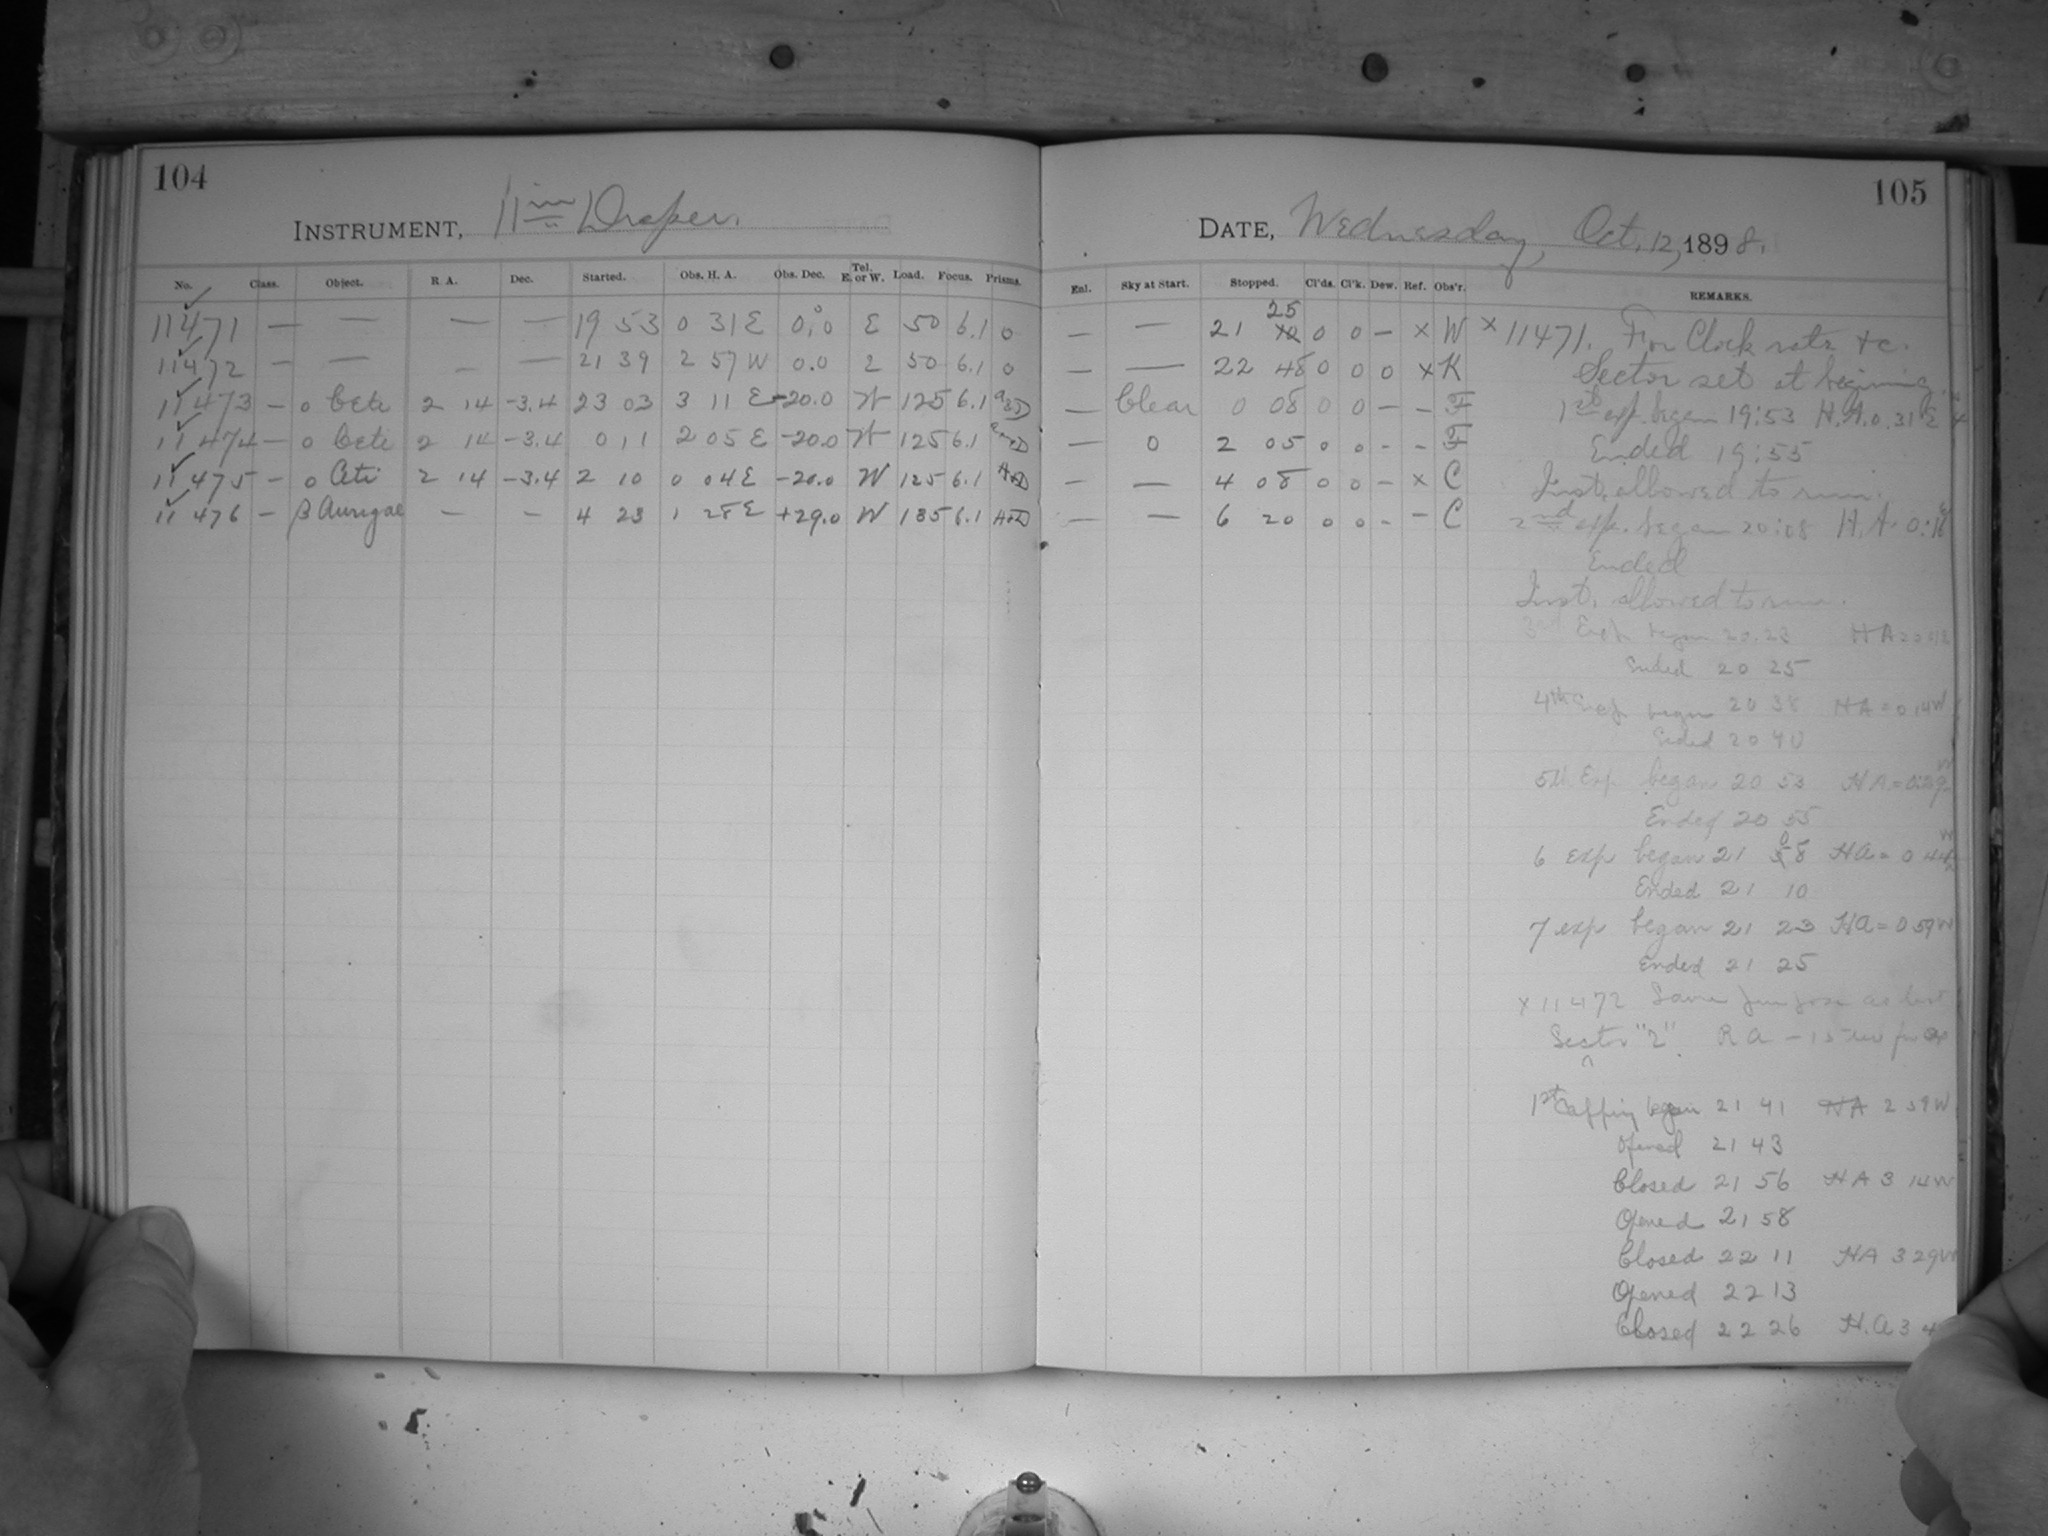 104
INSTRUMENT, 11 in Draper.
No. Class. Object. R. A. Dec. Started. Obs. H. A. Obs. Dec. Tel. E. or W. Load. Focus. Prisms.
11471 — — — — 19 53 0 31 E 0.0 E 50 6.1 0
11472 — — — — 21 39 2 57 W 0.0 2 50 6.1 0
11473 — o Ceti 2 14 -3.4 23 03 3 11 E -20.0 W 125 6.1
11474 — o Ceti 2 14 -3.4 0 11 2 05 E -20.0 W 125 6.1
11475 — o Ceti 2 14 -3.4 2 10 0 04 E -20.0 W 125 6.1
11476 — β Aurigae — — 4 23 1 28 E +29.0 W 185 6.1
105
DATE, Wednesday, Oct. 12, 1898.
Enl. Sky at Start. Stopped. Cl'ds. Cl'k. Dew. Ref. Obs'r. REMARKS.
— — 21 25 0 0 — x W
— — 22 48 0 0 0 x K
— Clear 0 08 0 0 — — F
— 0 2 05 0 0 - - F
— — 4 08 0 0 — x C
— — 6 20 0 0 - - C
x 11471. For Clock rate &c.
Sector set at begining.
1st exp. began 19:53 H.A. 0.31 E
Ended 19:55
Inst. allowed to run.
2nd exp. began 20:08 H.A. 0:16
Ended
Inst. allowed to run.
3rd Exp began 20.23 HA
Ended 20 25
4th Exp began 20 38 HA = 0 14 W
Ended 20 40
5th Exp began 20 53 HA = 0:29 W
Ended 20 55
6 exp began 21 08 HA = 0 44 W
Ended 21 10
7 exp began 21 23 HA = 0 59 W
Ended 21 25
x 11472 Same purpose as last
Sector "2" R A — 15
1st Capping began 21 41 HA 2 59 W
Opened 21 43
Closed 21 56 HA 3 14 W
Opened 21 58
Closed 22 11 HA 3 29 W
Opened 22 13
Closed 22 26 H.A 3 4